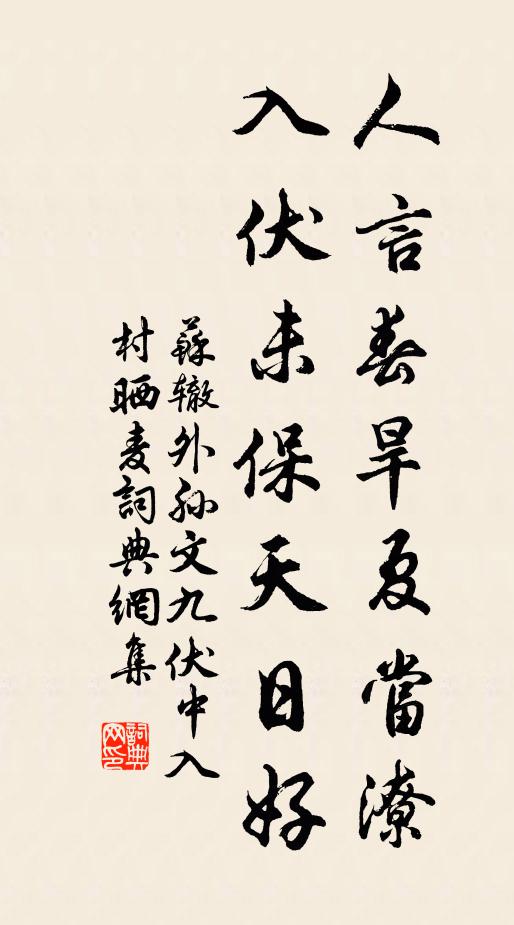 人言春旱夏當潦
入伏未保天日好
蘇辙外孙文九伏中入
村晒麦詞典網集
詞典
网印